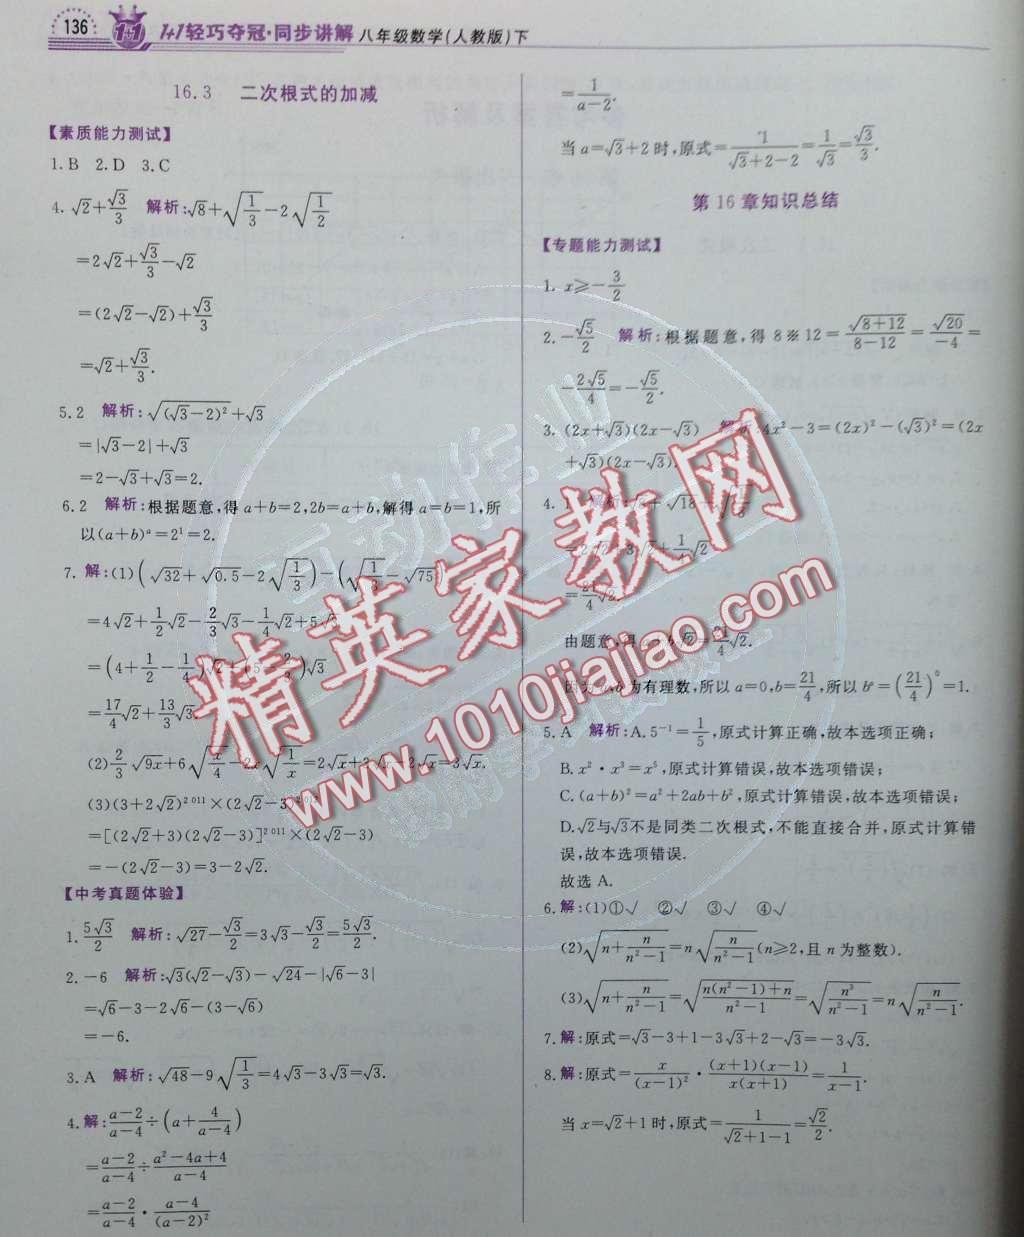 136 1+1轻巧夺冠·同步讲解 八年级数学(人教版)下
16.3 二次根式的加减
【素质能力测试】
1.B 2.D 3.C
4.√2+√3/3 解析:√8+√(1/3)-2√(1/2)
=2√2+√3/3-√2
=(2√2-√2)+√3/3
=√2+√3/3.
5.2 解析:√((√3-2)²)+√3
=|√3-2|+√3
=2-√3+√3=2.
6.2 解析:根据题意,得a+b=2,2b=a+b,解得a=b=1,所
以(a+b)ᵃ=2¹=2.
7.解:(1)(√32+√0.5-2√(1/3))-(√(1/3)-√75)
=4√2+1/2√2-2/3√3-1/4√2+5√3
=(4+1/2-1/4)√2+(5-2/3)√3
=17/4√2+13/3√3
(2)2/3√9x+6√(x/4)-2x√(1/x)=2√x+3√x-2√x=3√x.
(3)(3+2√2)²⁰¹¹×(2√2-3)²⁰¹²
=[(2√2+3)(2√2-3)]²⁰¹¹×(2√2-3)
=-(2√2-3)=3-2√2.
【中考真题体验】
1.5√3/2 解析:√27-√3/2=3√3-√3/2=5√3/2.
2.-6 解析:√3(√2-√3)-√24-|√6-3|
=√6-3-2√6-(3-√6)
=-6.
3.A 解析:√48-9√(1/3)=4√3-3√3=√3.
4.解:(a-2)/(a-4)÷(a+4/(a-4))
=(a-2)/(a-4)÷(a²-4a+4)/(a-4)
=(a-2)/(a-4)·(a-4)/(a-2)²
=1/(a-2).
当a=√3+2时,原式=1/(√3+2-2)=1/√3=√3/3.
第16章知识总结
【专题能力测试】
1.x≥-3/2
2.-√5/2 解析:根据题意,得8※12=√(8+12)/(8-12)=√20/-4=
-2√5/4=-√5/2.
3.(2x+√3)(2x-√3) 解析:4x²-3=(2x)²-(√3)²=(2x
+√3)(2x-√3).
4.1 解析:√8+√18+√
=2√2+3√2+1/4√2
=21/4√2.
由题意,得a+b√2=21/4√2.
因为a,b为有理数,所以a=0,b=21/4,所以bᵃ=(21/4)⁰=1.
5.A 解析:A.5⁻¹=1/5,原式计算正确,故本选项正确;
B.x²·x³=x⁵,原式计算错误,故本选项错误;
C.(a+b)²=a²+2ab+b²,原式计算错误,故本选项错误;
D.√2与√3不是同类二次根式,不能直接合并,原式计算错
误,故本选项错误.
故选A.
6.解:(1)①√ ②√ ③√ ④√
(2)√(n+n/(n²-1))=n√(n/(n²-1))(n≥2,且n为整数).
(3)√(n+n/(n²-1))=√((n(n²-1)+n)/(n²-1))=√(n³/(n²-1))=n√(n/(n²-1)).
7.解:原式=√3-3+1-3√3+2-√3=-3√3.
8.解:原式=x/(x-1)²·(x+1)(x-1)/x(x+1)=1/(x-1).
当x=√2+1时,原式=1/(√2+1-1)=√2/2.
精英家教网
www.1010jiajiao.com